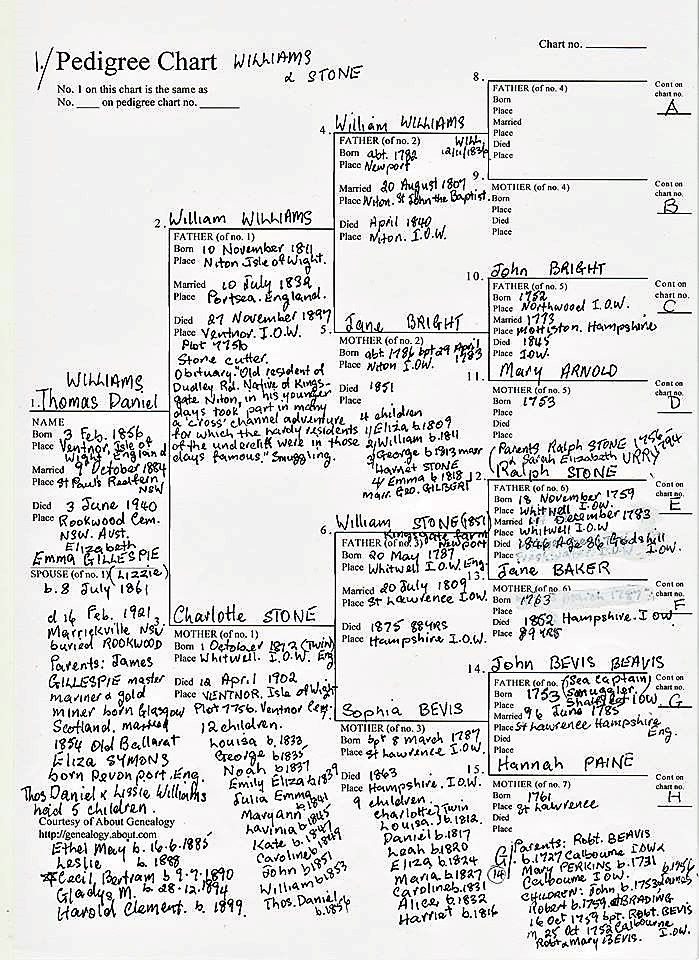 1./ Pedigree Chart WILLIAMS
& STONE
Chart no.
No. 1 on this chart is the same as
No. ____ on pedigree chart no. ____
1. WILLIAMS
Thomas Daniel
NAME
Born 3 Feb. 1856
Place Ventnor, Isle of
Wight England
Married 9 October 1884
Place St Pauls Redfern
NSW
Died 3 June 1940
Place Rookwood Cem.
NSW. Aust.
Elizabeth
Emma GILLESPIE
SPOUSE (of no. 1) (Lizzie)
b. 8 July 1861
d 16 Feb. 1921
Marrickville NSW
buried ROOKWOOD
Parents: James
GILLESPIE master
mariner & gold
miner born Glasgow
Scotland. married
1854 Old Ballarat
Eliza SYMONS
born Devonport, Eng.
Thos Daniel & Lissie Williams
had 5 children.
Courtesy of About Genealogy
http://genealogy.about.com
Ethel May b. 16.6.1885
Leslie b. 1888
Cecil, Bertram b 9.7.1890
Gladys M. b 28.12.1894
Harold Clement. b. 1899.
2. William WILLIAMS
FATHER (of no. 1)
Born 10 November 1811
Place Niton Isle of Wight.
Married 10 July 1832
Place Portsea. England.
Died 27 November 1897
Place Ventnor. I.O.W.
Plot 775b
Stone cutter.
Obituary. "Old resident of
Dudley Rd. Native of Kings-
gate Niton, in his younger
days took part in many
a 'cross' channel adventure
for which the hardy residents
of the undercliff were in those
days famous." Smuggling.
Charlotte STONE
MOTHER (of no. 1)
Born 1 October 1812 (Twin)
Place Whitwell. I.O.W. Eng
Died 12 April 1902
Place VENTNOR. Isle of Wight
Plot 775b. Ventnor Cem.
12 children.
Louisa b. 1833
George b 1835
Noah b 1837
Emily Eliza b 1839
Julia Emma
Maryann b 1841
Lavinia b 1845
Kate b. 1847
Caroline b 1849
John b 1851
William b 1853
Thos. Daniel
b. 1856
4. William WILLIAMS
FATHER (of no. 2) WILL
Born abt. 1782 12/11/1836
Place Newport
Married 20 August 1807
Place Niton. St John the Baptist.
Died April 1840
Place Niton. I.O.W.
5. Jane BRIGHT
MOTHER (of no. 2)
Born abt 1786 bpt 29 April
Place Niton I.O.W. 1783
Died 1851
Place
4 children
1/ Eliza b 1809
2/ William b. 1811
3/ George b 1813 marr
Harriet STONE
4/ Emma b 1818
marr. Geo. GILBERT
6. William STONE (1851)
Kingsgate farm
FATHER (of no. 3) Newport
Born 20 May 1787
Place Whitwell I.O.W. Eng
Married 20 July 1809
Place St Lawrence I.O.W.
Died 1875 88YRS
Place Hampshire I.O.W.
7. Sophia BEVIS
MOTHER (of no. 3)
Born bpt 8 march 1787
Place St Lawrence I.O.W.
Died 1863
Place Hampshire. I.O.W.
9 children.
Charlotte } Twin
Louisa. } b 1812.
Daniel b. 1817
Leah b 1820
Eliza b. 1824
Maria b 1827
Caroline b. 1831
Alice b. 1832
Harriet b. 1816
8.
FATHER (of no. 4)
Born
Place
Married
Place
Died
Place
Cont on
chart no.
A
9.
MOTHER (of no. 4)
Born
Place
Died
Place
Cont on
chart no.
B
10. John BRIGHT
FATHER (of no. 5)
Born 1752
Place Northwood I.O.W.
Married 1773
Place Mottiston. Hampshire
Died 1845
Place IOW.
Cont on
chart no.
C
11. Mary ARNOLD
MOTHER (of no. 5)
Born 1753
Place
Died
Place
Cont on
chart no.
D
Parents Ralph STONE
Sarah Elizabeth URRY
12. Ralph STONE
FATHER (of no. 6)
Born 18 November 1759
Place Whitwell I.O.W.
Married December 1783
Place Whitwell I.O.W
Died 1846 Age 86 Godshill
Place I.O.W.
Cont on
chart no.
E
13. Jane BAKER
MOTHER (of no. 6)
Born 1763
Place
Died 1852 Hampshire. I O W
Place 89 YRS
Cont on
chart no.
F
14. John BEVIS BEAVIS
FATHER (of no. 6) (Sea Captain)
Born 1753 Smuggler.
Place Shalfleet IOW
Married 96 June 1785
Place St Lawrence Hampshire
Died Eng.
Place
Cont on
chart no.
G
15. Hannah PAINE
MOTHER (of no. 7)
Born 1761
Place St Lawrence
Died
Place
Cont on
chart no.
H
G/ 14 Parents: Robt. BEAVIS
b. 1727 Calbourne IOW &
Mary PERKINS b. 1731
Calbourne I.O.W.
CHILDREN: John b. 1753 James b 1756
Robert b. 1759. of BRADING
16 Oct 1759 bpt. Robt. BEVIS
m 25 Oct 1752 Calbourne
Robt & Mary BEVIS. I.O.W.